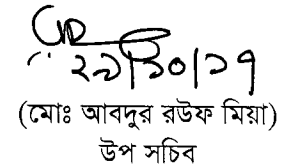 ২৯/১০/১৭
(মোঃ আবদুর রউফ মিয়া)
উপ সচিব